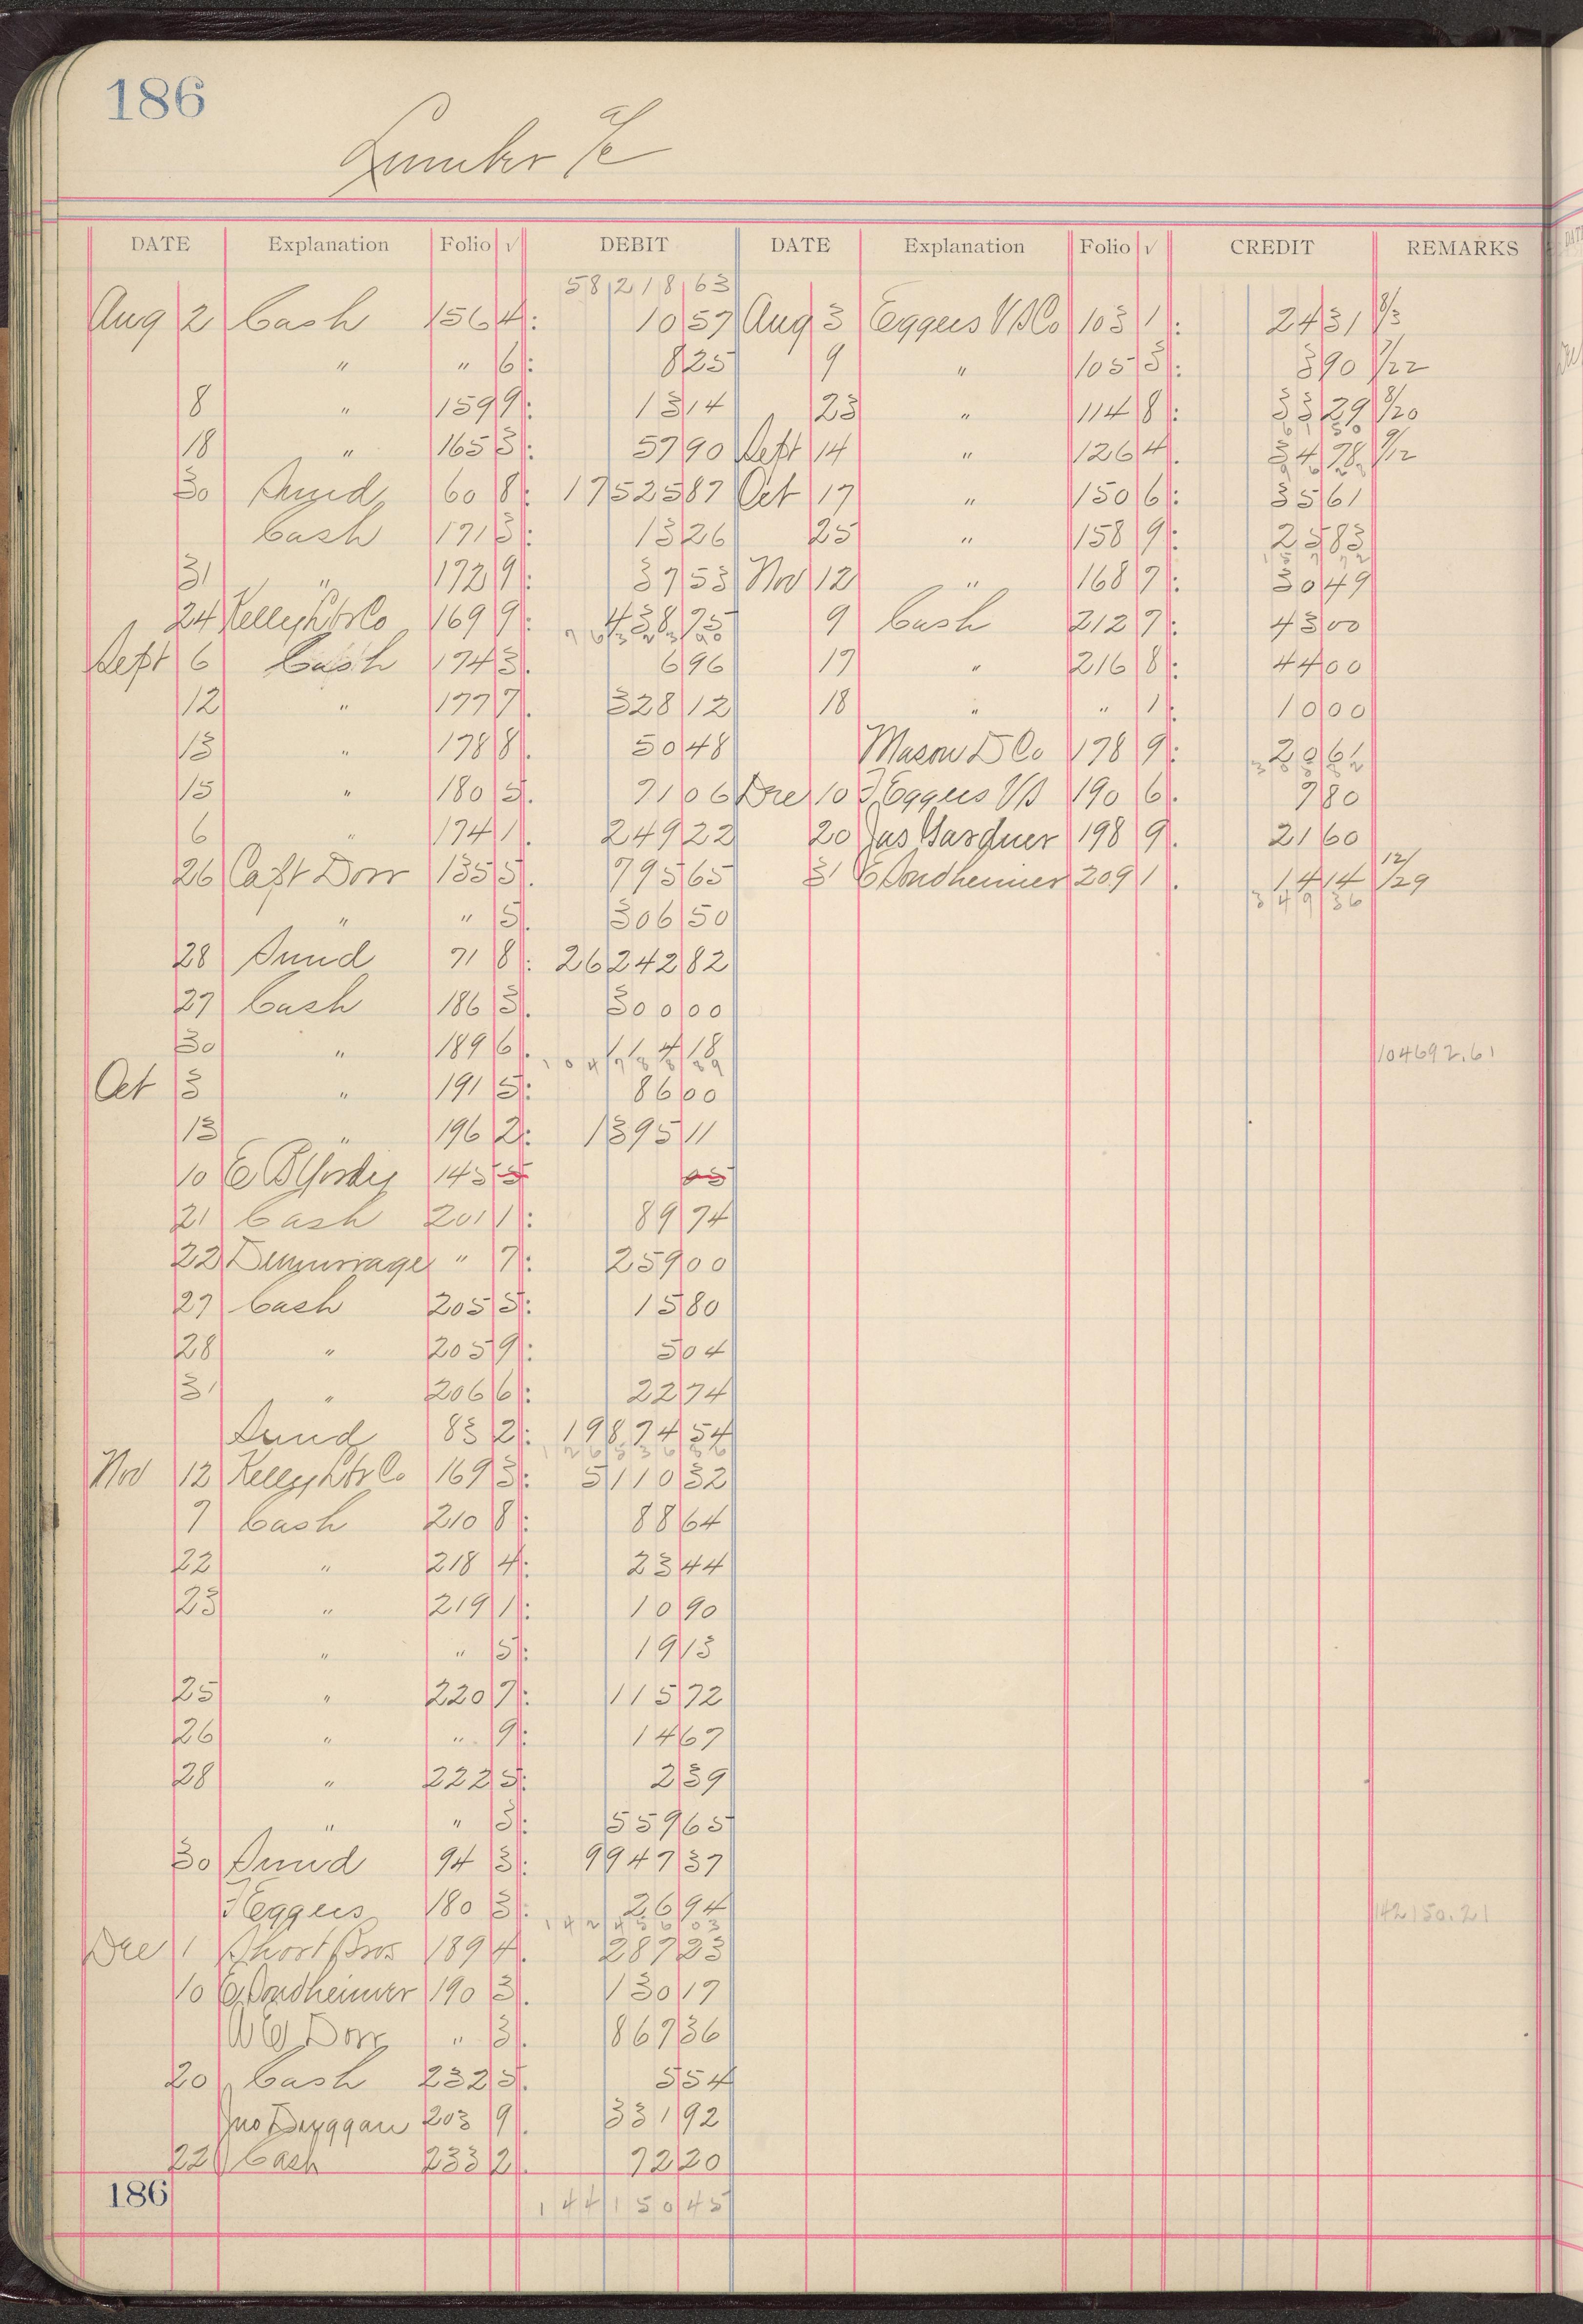 186
Lumber a/c
DATE Explanation Folio √ DEBIT DATE Explanation Folio √ CREDIT REMARKS
58218 63
Aug 2 Cash 156 4 10 57 Aug 3 Eggers V S Co 103 1 24 31 8/3
" " 6 8 25 9 " 105 3 3 90 7/22
8 " 159 9 13 14 23 " 114 8 33 29 8/20
61 50
18 " 165 3 57 90 Sept 14 " 126 4 34 78 9/12
30 Sund 60 8 17525 87 Oct 17 " 150 6 35 61
Cash 171 3 13 26 25 " 158 9 25 83
31 " 172 9 37 53 Nov 12 " 168 7 30 49
24 Kelley Lbr Co 169 9 438 75 9 Cash 212 7 43 00
76323 90
Sept 6 Cash 174 3 6 96 17 " 216 8 44 00
12 " 177 7 328 12 18 " " 1 10 00
13 " 178 8 50 48 Mason D Co 178 9 20 61
15 " 180 5 71 06 Dec 10 F Eggers V S 190 6 7 80
6 " 174 1 249 22 20 Jas Gardner 198 9 21 60
26 Capt Dorr 135 5 795 65 31 E Sondheimer 209 1 14 14 12/29
349 36
" " 5 306 50
28 Sund 71 8 26242 82
27 Cash 186 3 300 00
30 " 189 6 114 18
104692.61
Oct 3 " 191 5 86 00
13 " 196 2 1395 11
10 145 5 05
21 Cash 201 1 89 74
22 Demurrage " 7 259 00
27 Cash 205 5 15 80
28 " 205 9 5 04
31 " 206 6 22 74
Sund 83 2 19874 54
126536 36
Nov 12 Kelley Lbr Co 169 3 5110 32
7 Cash 210 8 88 64
22 " 218 4 23 44
23 " 219 1 10 90
" " 5 19 13
25 " 220 7 115 72
26 " " 9 14 67
28 " 222 5 2 39
" " 3 559 65
30 Sund 94 3 9947 37
F Eggers 180 3 26 94
142456 03 142150.21
Dec 1 Short Bros 189 4 287 23
10 E Sondheimer 190 3 130 17
W E Dorr " 3 867 36
20 Cash 232 5 5 54
Jno Duggan 203 9 331 92
22 Cash 233 2 72 20
186 144150 45